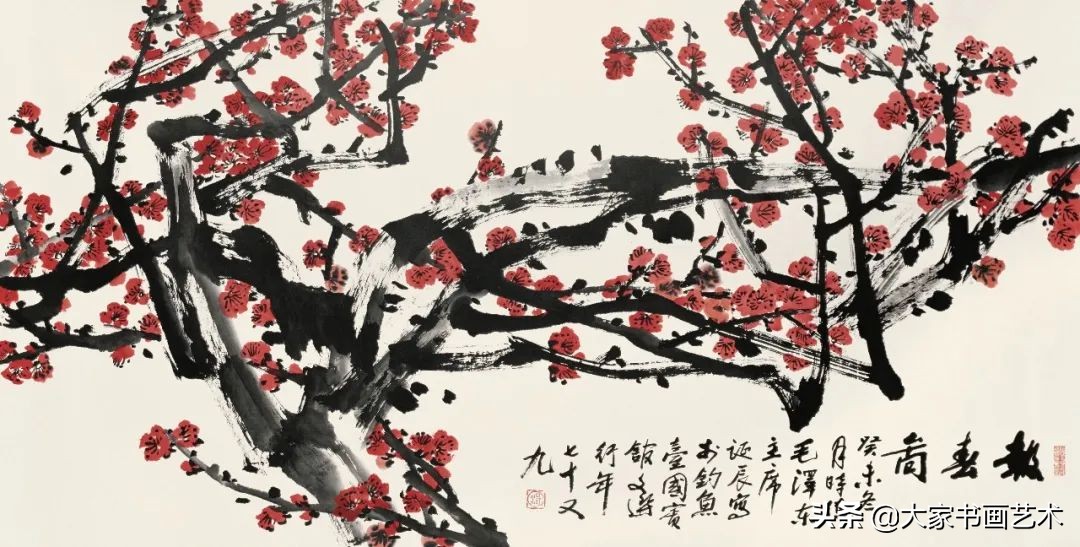 報春啚
癸未冬
月時
毛澤东
主席
诞辰寫
於釣魚
臺國賓
館文選
行年
七十又
九
头条 @大家书画艺术